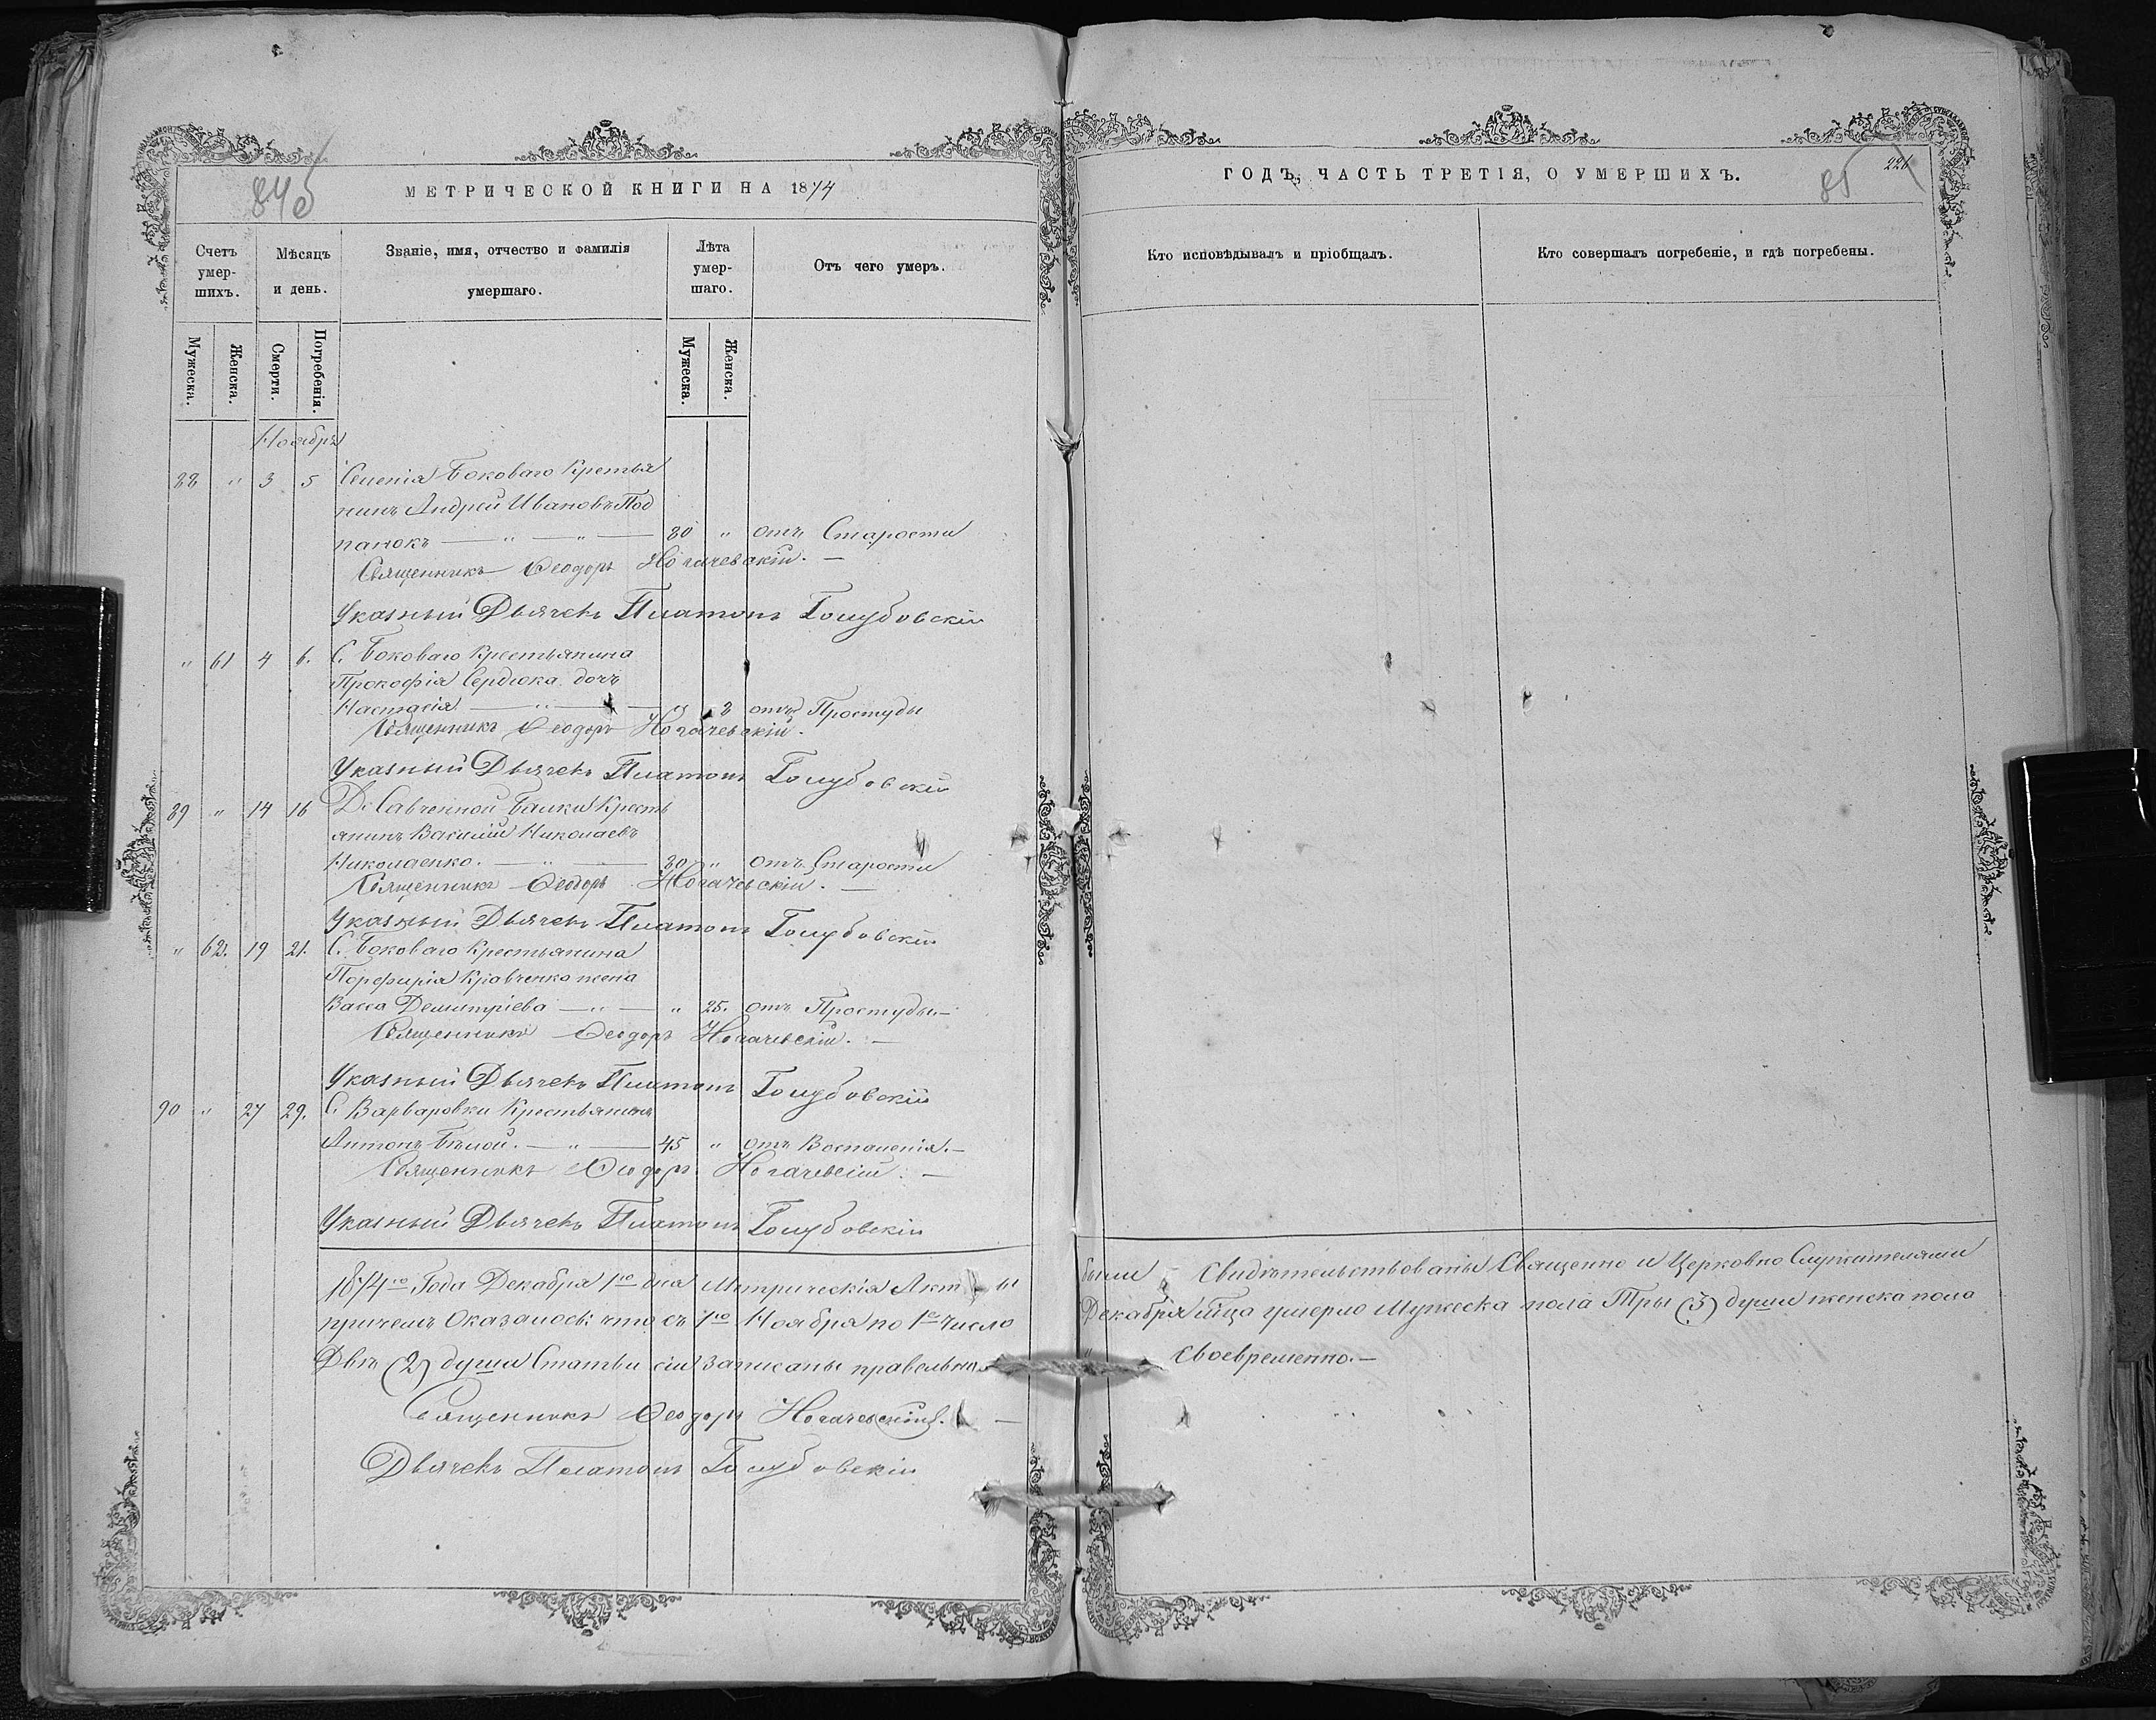 845
МЕТРИЧЕСКОЙ КНИГИ НА 1874
Счетъ умер-шихъ.
Мѣсяцъ и день.
Званіе, имя, отчество и фамилія умершаго.
Лѣта умер-шаго.
Отъ чего умеръ.
Мужеска.
Женска.
Смерти.
Погребенія.
Мужеска.
Женска.
Ноябрь
88 " 3 5 Селенія Боковаго Крестья
нинъ Андрей Ивановъ Под
панокъ — " — " — 80 " отъ Старости
Священникъ Феодоръ Ногачевскій. —
Указный Дьячекъ Платонъ Голубовскій
" 61 4 6. С. Боковаго Крестьянина
Прокофія Сердюка дочь
Настасія — " — " 3 отъ Простуды
Священникъ Феодоръ Ногачевскій.
Указный Дьячекъ Платонъ Голубовскій
89 " 14 16 Д. Савченной Балки Кресть
янинъ Василій Николаевъ
Николаенко. — " — 80 " отъ Старости
Священникъ Феодоръ Ногачевскій. —
Указный Дьячекъ Платонъ Голубовскій
" 62. 19 21. С. Боковаго Крестьянина
Порфирія Кравченка жена
Васса Демитріева — " — " 25. отъ Простуды. —
Священникъ Феодоръ Ногачевскій. —
Указный Дьячекъ Платонъ Голубовскій
90 " 27 29. С. Варваровки Крестьянинъ
Антонъ Бѣлой. — " — 45 " отъ Воспаленія. —
Священникъ Феодоръ Ногачевскій. —
Указный Дьячекъ Платонъ Голубовскій
1874го Года Декабря 1го дня Метрическія Акты
причемъ Оказалось что съ 1го Ноября по 1е Число
Двѣ (2) души Статьи сіи записаны правельно
Священникъ Феодоръ Ногачевскій. —
Дьячекъ Платонъ Голубовскій
ГОДЪ, ЧАСТЬ ТРЕТІЯ, О УМЕРШИХЪ.
85
221
Кто исповѣдывалъ и пріобщалъ.
Кто совершалъ погребеніе, и гдѣ погребены.
были Свидѣтельствованы Священно и Церковно Служителями
Декабря мца умерло Мужеска пола Три (3) души женска пола
" своевременно. —